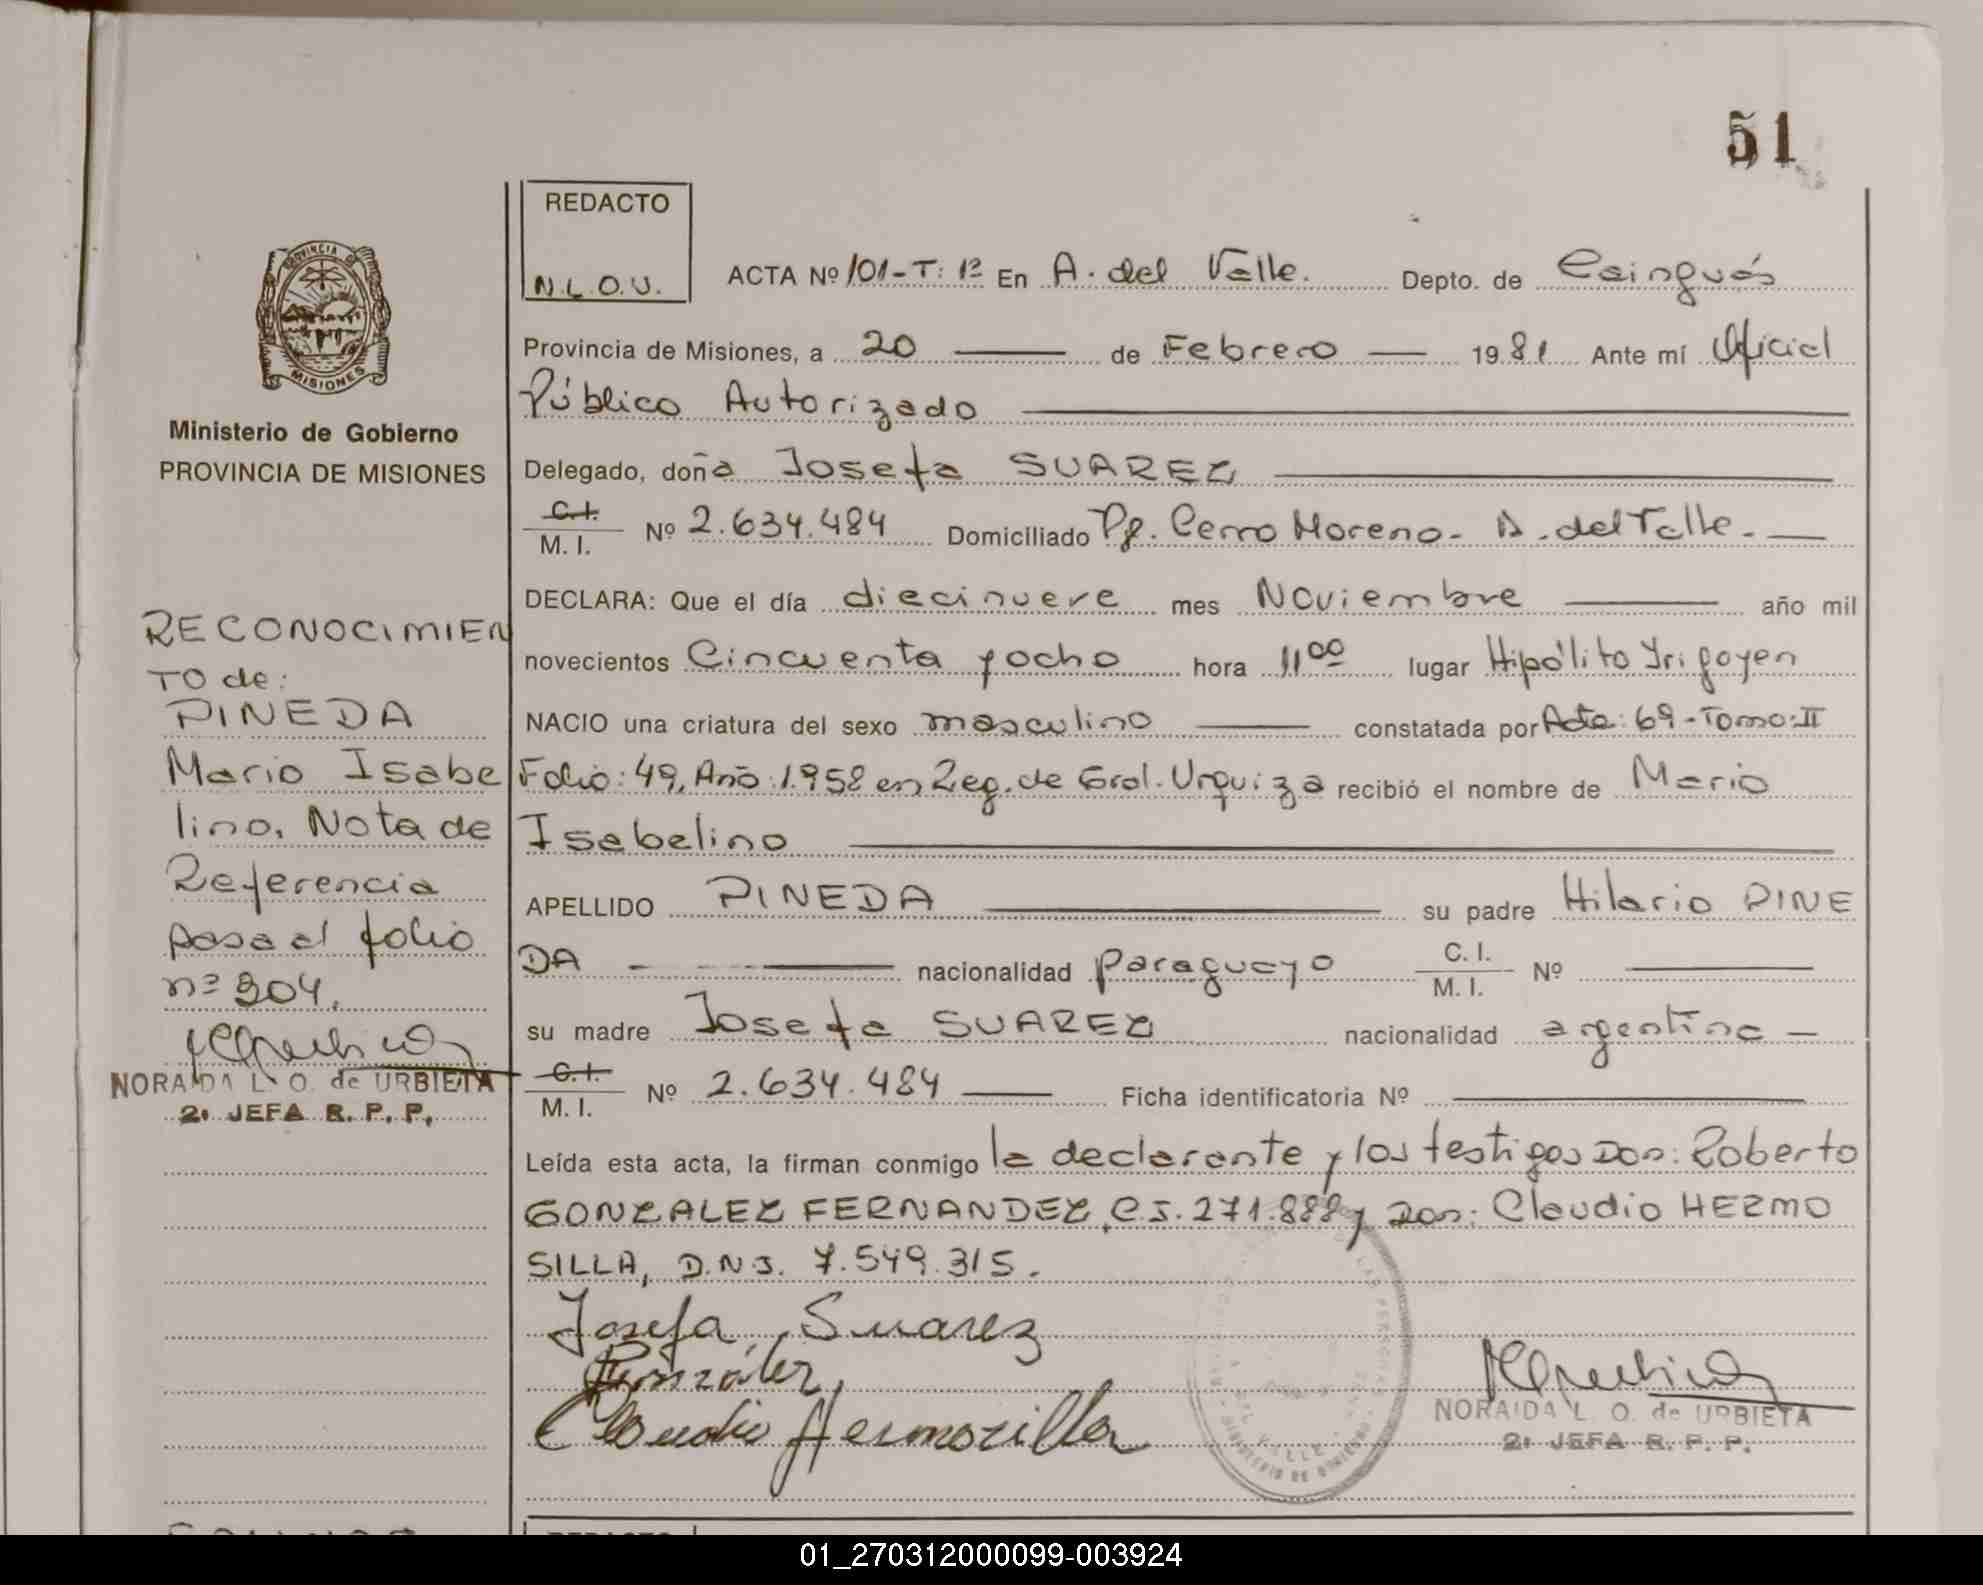 51
REDACTO
N.L.O.U.
ACTA Nº 101-T: 1º En A. del Valle. Depto. de Cainguás
Provincia de Misiones, a 20 de Febrero 1981 Ante mí Oficial
Público Autorizado
Delegado, doña Josefa SUAREZ
C.I.
M.I. Nº 2.634.484 Domiciliado Pje. Cerro Moreno - A. del Valle.
DECLARA: Que el día diecinueve mes Noviembre año mil
novecientos Cincuenta y ocho hora 11 00 lugar Hipólito Yrigoyen
NACIO una criatura del sexo masculino constatada por Acta: 69 - Tomo: II
Folio: 49, Año: 1.958 en Reg. de Gral. Urquiza recibió el nombre de Mario
Isabelino
APELLIDO PINEDA su padre Hilario PINE
DA nacionalidad paraguayo C.I.
M.I. Nº
su madre Josefa SUAREZ nacionalidad argentina
C.I.
M.I. Nº 2.634.484 Ficha identificatoria Nº
Leída esta acta, la firman conmigo la declarante y los testigos Don: Roberto
GONZALEZ FERNANDEZ, C.I. 271.888 y Don: Claudio HERMO
SILLA, D.N.I. 7.549.315.
Josefa Suarez
González
Claudio Hermosilla
NORAIDA L. O. de URBIETA
2ª JEFA R. P. P.
PROVINCIA DE
MISIONES
Ministerio de Gobierno
PROVINCIA DE MISIONES
RECONOCIMIEN
TO de:
PINEDA
Mario Isabe
lino. Nota de
Referencia
pasa al folio
nº 304.
NORAIDA L. O. de URBIETA
2ª JEFA R. P. P.
REDACTO
01_270312000099-003924